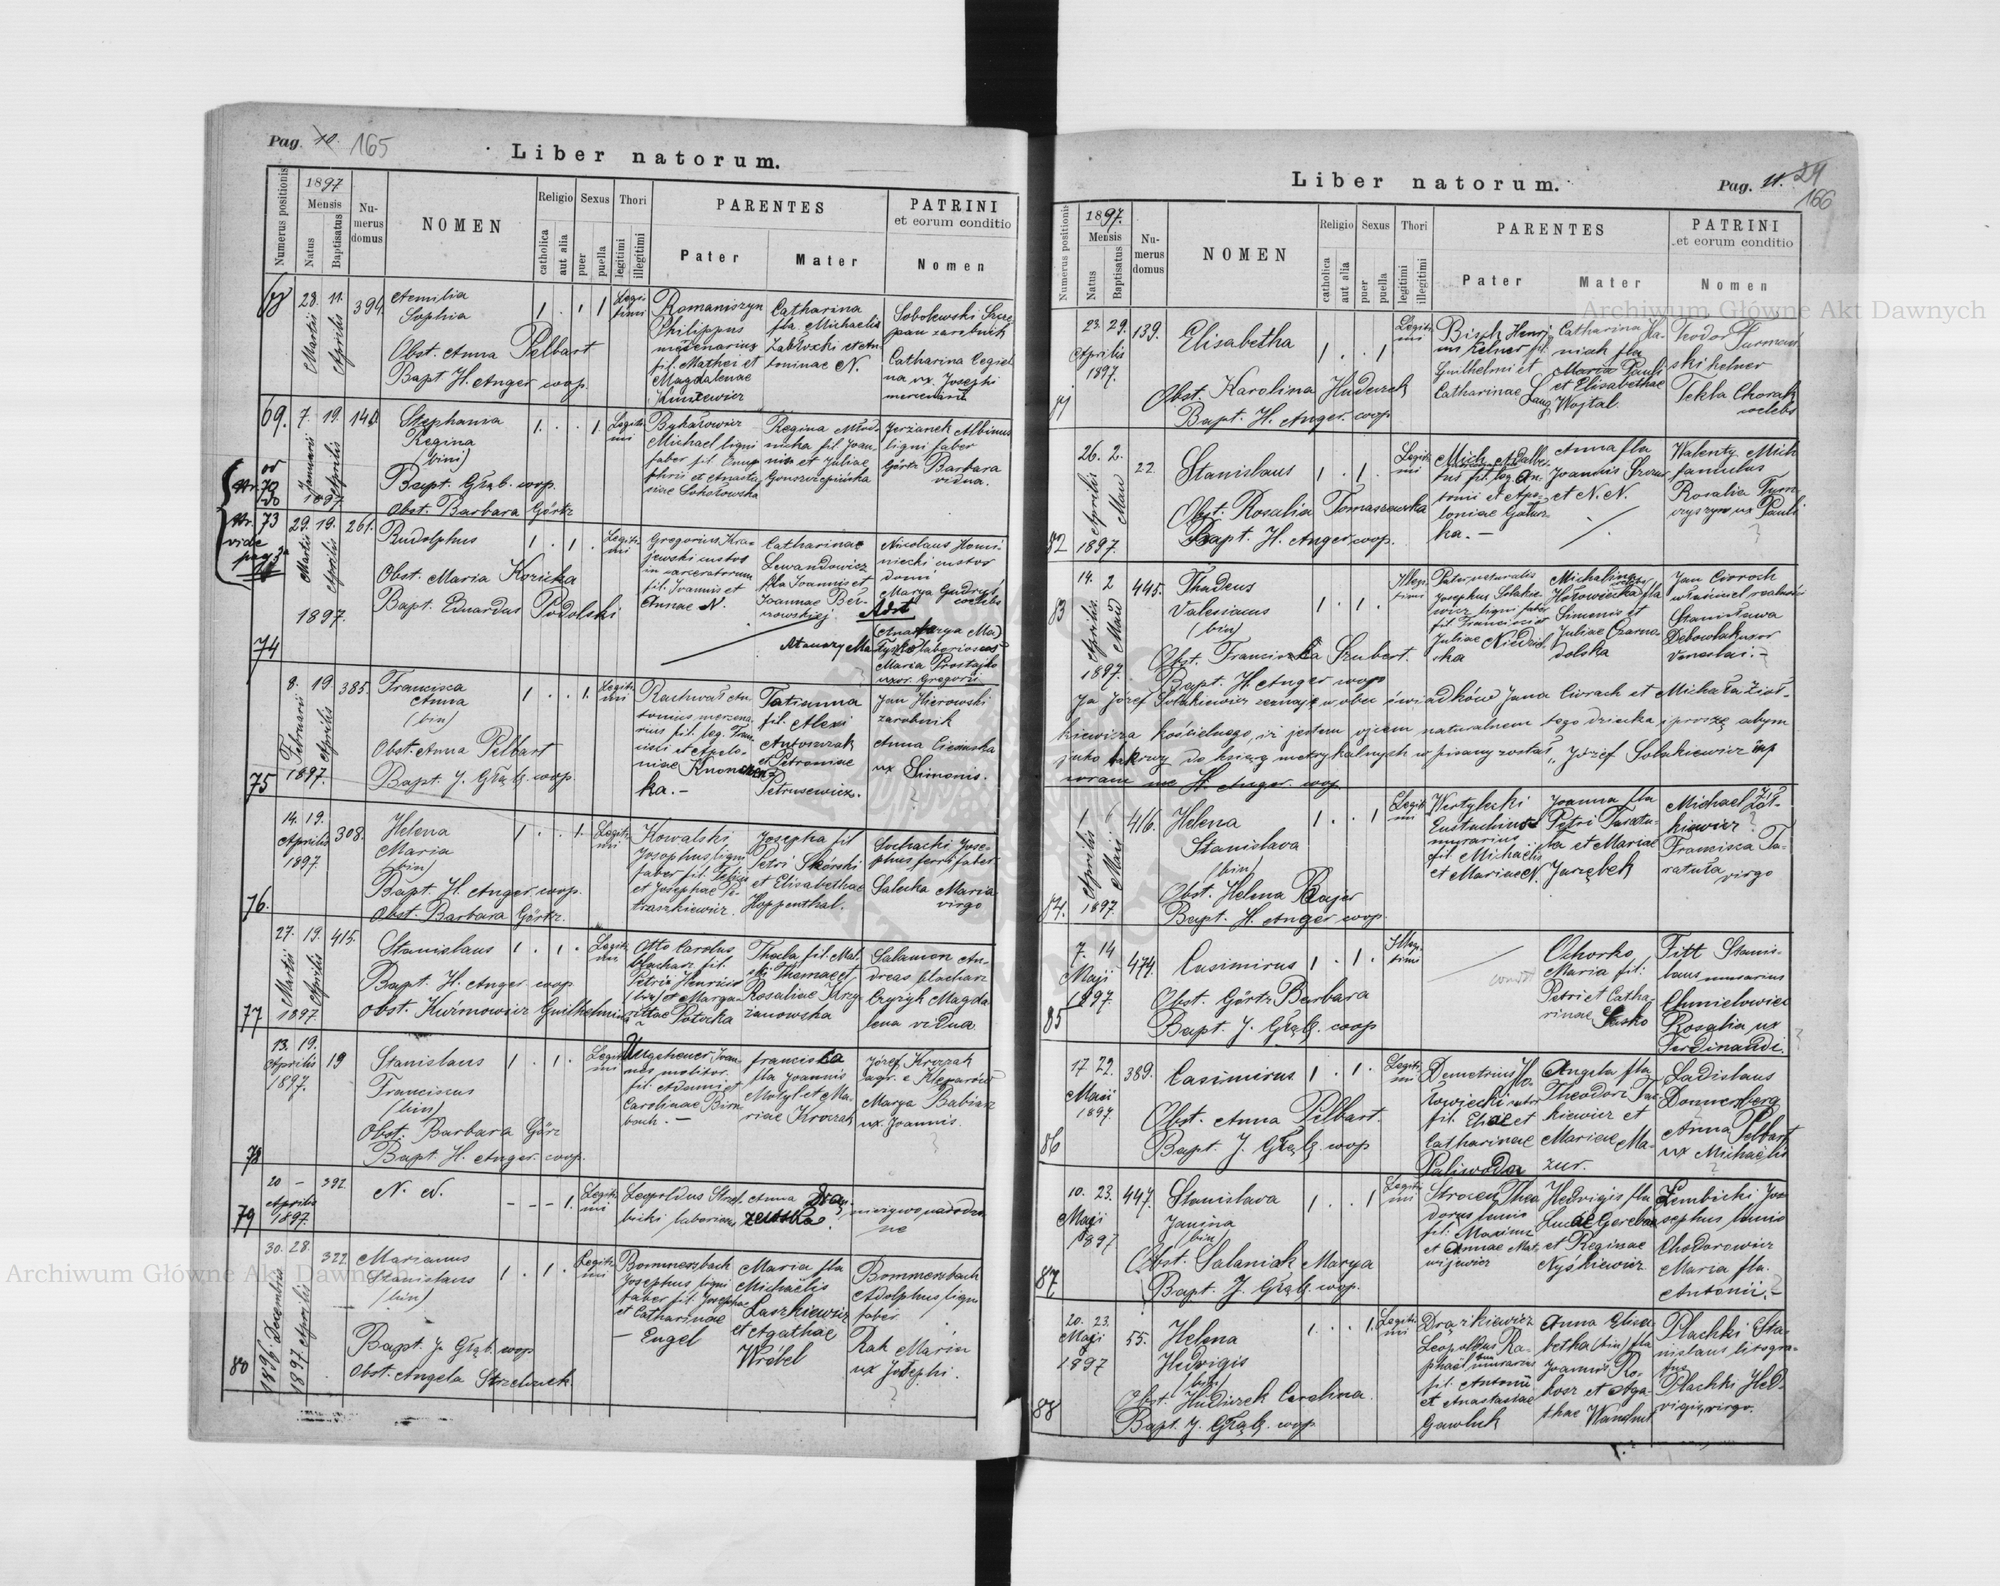 Pag. 10. 165
Liber natorum.
Numerus positionis
1897
Mensis
Natus
Baptisatus
Nu-
merus
domus
NOMEN
Religio
catholica
aut alia
Sexus
puer
puella
Thori
legitimi
illegitimi
PARENTES
Pater
Mater
PATRINI
et eorum conditio
Nomen
68
28. 11.
Martii Aprilis
394
Aemilia
Sophia
Obst. Anna Pelbart
Bapt. H. Anger coop.
Legi-
timi
Romaniszyn
Philippus
mercenarius
fil. Mathei et
Magdalenae
Catharina
fla. Michaelis
toninae N.
Sobolewski Szcze-
pan zarobnik
Catharina Cegiel
na ux. Josephi
mercenarii
69.
7. 19.
Januarii Aprilis
1897
144
Stephania
Regina
(bini)
Bapt. Głąb. coop.
Obst. Barbara Görtz
Legiti-
mi
Bykałowicz
Michael ligni
faber fil. Onup
phrii et Anasta-
siae Sokołowska
Regina Młod-
nicka fil. Joan-
nis et Juliae
Jerzanek Albinus
ligni faber
Görtz Barbara
vidua.
od
Nr. 70
do
Nr. 73
vide
74
29. 19.
Martii Aprilis
1897.
261.
Rudolphus
Obst. Maria Kozicka
Bapt. Eduardus Podolski
Legiti-
mi
Gregorius Kra-
jewski custos
in carceratorum
fil. Joannis et
Annae N.
Catharinae
Lewandowicz
fla Joannis et
Joannae Ber-
nowskiej.
Nicolaus Homi-
niecki custos
domi
Marya Gudryś
coelebs
Adst
Maria Prostajko
uxor. Gregorii
75
8. 19
Februarii Aprilis
1897.
385.
Francisca
Anna
(bin)
Obst. Anna Pelbart
Bapt. J. Głąb. coop.
Legiti-
mi
Rachwał An-
tonius mercena-
rius fil. leg. Fran-
cisci et Apolo-
niae
ka.-
Tatianna
fil. Alexi
Antoszczak
et Petroniae
Petrusewicz.
Jan Hierowski
zarobnik
Anna Ciesińska
ux Simonis.
76.
14. 19.
Aprilis
1897.
308.
Helena
Maria
(bin)
Bapt. H. Anger. coop.
Obst. Barbara Görtz
Legiti-
mi
Kowalski
Josephus ligni
faber fil. Felicis
et Josephae Pe-
traszkiewicz.
Josepha fil
Petri Skórski
et Elisabethae
Hoppenthal.
Sochacki Jose-
phus ferri faber
Salucka Maria
virgo
77
27. 19.
Martii Aprilis
1897
415.
Stanislaus
Bapt. H. Anger coop
Obst. Kuźmowicz Guilhelmina
Legiti-
mi
Otto Carolus
blacharz fil.
Petri Henrici
(bin) et Marga-
rittae Potocka
Thecla fil. Mat.
ski Thomae et
Rosaliae Krzy-
żanowska
Salamon An-
dreas blacharz
Czyżyk Magda
lena vidua.
78
13. 19.
Aprilis
1897.
19
Stanislaus
Franciscus
(bin)
Obst. Barbara Görz
Bapt. H. Anger. coop.
Legiti-
mi
Ungeheuer Joan-
nes molitor.
fil. Adami et
Carolinae Birn
bach. -
Francisca
fla Joannis
Motyl et Ma-
riae Kroczak
Józef Kroczak
agr. e Kleparów
Marya Babiak
ux. Joannis.
79
20 -
Aprilis
1897.
392.
N. N.
Legiti-
mi
Leopoldus Strzel-
bicki laborious
Anna
nieżywo narodzo
ne
80
30. 28.
1896. Decembris
1897. Aprilis
322.
Marianus
Stanislaus
(bin)
Bapt. J. Głąb. coop
Obst. Angela Strzelczuk
Legiti-
mi
Bommersbach
Josephus ligni
faber fil. Josephae
et Catharinae
- Engel
Maria fla
Michaelis
Laszkiewicz
et Agathae
Wróbel
Bommersbach
Adolphus ligni
faber
Rak Maria
ux Josephi.
Liber natorum.
Pag. 11. 24
166
Numerus positionis
1897.
Mensis
Natus
Baptisatus
Nu-
merus
domus
NOMEN
Religio
catholica
aut alia
Sexus
puer
puella
Thori
legitimi
illegitimi
PARENTES
Pater
Mater
PATRINI
et eorum conditio
Nomen
Archiwum Główne Akt Dawnych
23. 29.
Aprilis
1897.
139.
Elisabetha
Obst. Karolina Hudeczek
Bapt. H. Anger. coop
Legiti-
mi
Bisch Henri-
cus kelner fil.
Guilhelmi et
Catharinae Lang
Catharina Ha-
niak fla
et Elisabethae
Wojtal.
Teodor Furmań
ski kelner
Tekla Chorak
coelebs
82
26. 2.
Aprilis Maii
1897.
22.
Stanislaus
Obst. Rosalia Tomaszewska
Bapt. H. Anger coop.
Legiti-
mi
Mich Adalber-
tus fil. leg. An-
tonii et Apo-
loniae Gołur-
ka. -
Anna fla
Joannis Szczur
et N. N.
Walenty Mich
famulus
Rosalia Tym
czyszyn ux Pauli
83
14. 2
Aprilis Maii
1897.
495.
Thadeus
Valesianus
(bin)
Obst. Franciszka Szubert.
Bapt. H. Anger coop
Illegi-
timi
Pater naturalis
Josephus Solakie-
wicz ligni faber
fil. Francisci et
Juliae Niedziel-
ska
Michalina
Hołowiecka fla
Simonis et
Juliae Czarno-
dolska
Jan Ciorach
właściciel realności
Stanisława
Dębowska uxor
Venceslai. -
Ja Józef Solakiewicz zeznaję w obec świadków Jana Ciorach et Michała Ziół-
kiewicza kościelnego, iż jestem ojcem naturalnem tego dziecka i proszę abym
jako takowy do ksiąg metrykalnych wpisany został „Józef Solakiewicz mp
coram me H. Anger. coop.
84.
1 6
Aprilis Maii
1897.
416.
Helena
Stanislava
(bin)
Obst. Helena Bajer
Bapt. H. Anger coop.
Legiti-
mi
Wertylecki
Eustachius
murarius
fil. Michaëlis
et Mariae N.
Joanna fla
Petri Taratu-
ta et Mariae
Jurzębek
Michael Ziół-
kiewicz
Francisca Ta-
ratuta virgo
85
7. 14
Maji
1897.
474.
Casimirus
Obst. Görtz Barbara
Bapt. J. Głąb. coop
Illegi-
timi
Ozhorko
Maria fil:
Petri et Catha-
rinae Lasko
Titt Stanis-
laus murarius
Chmielowiec
Rosalia ux
Ferdinandi.
86
17. 22.
Maii
1897.
389.
Casimirus
Obst. Anna Pelbart.
Bapt. J. Głąb. coop
Legiti-
mi
Demetrius Ho-
łowiecki
fil. Eliae et
Catharinae
Paliwoda
Angela fla
Theodori Tar-
kiewicz et
Mariae Ma-
zur.
Ladislaus
Donnersberg
Anna Pelbart
ux Michaëlis
87
10. 23.
Maji
1897
447.
Stanislava
Janina
(bin)
Obst. Salaniak Marya
Bapt. J. Głąb. coop.
Legiti-
mi
Strocen Theo
dorus lanio
fil. Maximi
et Annae Mat-
wijewicz
Hedvigis fla
Lucae Gereban
et Reginae
Nyśkiewicz
Zembicki Jo-
sephus lanio
Chodorowicz
Maria fla.
Antonii. -
88
20. 23.
Maji
1897
55.
Helena
Hedvigis
(bin)
Obst. Hudeczek Carolina.
Bapt. J. Głąb. coop
Legiti-
mi
Drążkiewicz
Leopoldus Ra-
phaël bin murarius
fil. Antonii
et Anastasiae
Gawluk
Anna Elisa
betha (bin) fla
Joannis Ro-
kosz et Aga-
thae Wandrut
Plachki Sta-
nislaus litogra-
fus
Plachki Hed-
vigis, virgo.
Archiwum Główne Akt Dawnych